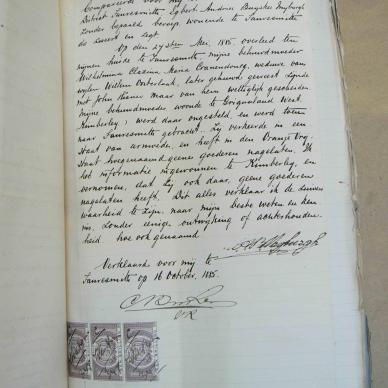 Compareerde voor mij
District Fauresmith, Egbert Andries Buyskes Myburgh
zonder bepaald beroep wonende te Fauresmith
die zweert en zegt
Op den 27sten Mei, 1885, overleed ten
mijnen huize te Fauresmith mijne behuwdmoeder
Wilhelmina Clasina Mona Cranendoncq, weduwe van
wylen Willem Oosterlaak, later gehuwd geweest zynde
met John thiener maar van hem wettiglyk gescheiden.
Mijne behuwdmoeder woonde te Griqualand West
Kimberley; werd daar ongesteld, en werd toen
naar Fauresmith gebracht. Zy verkeerde in een
staat van armoede, en heeft in den Oranje Vry
Staat hoegenaamd geene goederen nagelaten. Ik
heb informatie ingewonnen te Kimberley, en
vernomen, dat Zy ook daar, geene goederen
nagelaten heeft. Dit alles verklaar ik de zuivere
waarheid te zyn, naar mijn beste weten en ken
nis, zonder eenige ontwyking of achterhouden
heid hoe ook genaamd
Myburgh
Verklaard voor mij te
Fauresmith op 16 October, 1885.
V.R.